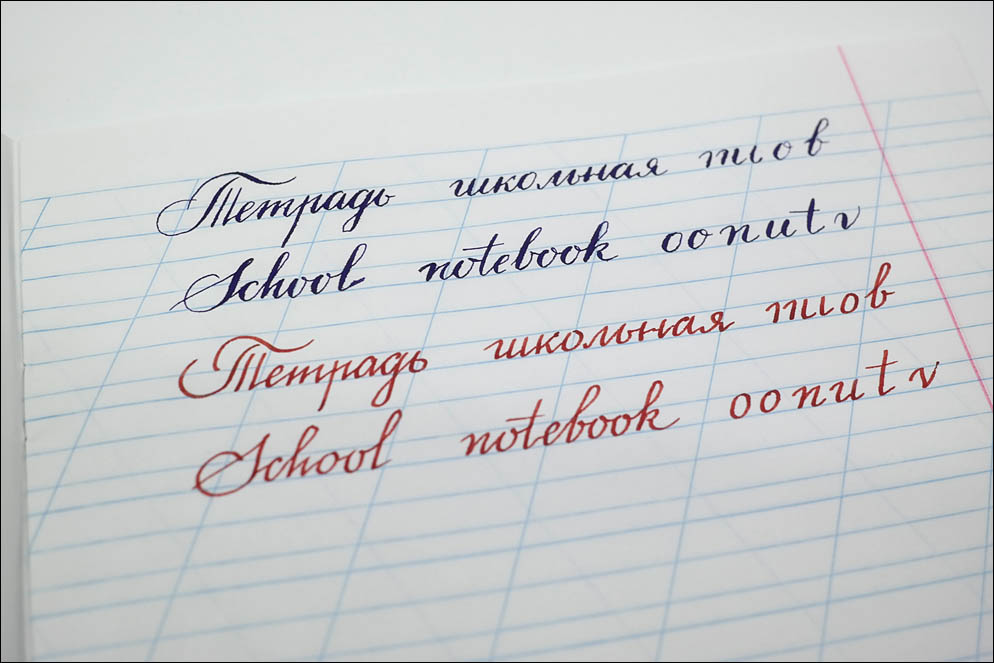 Тетрадь школьная т и о в
School notebook o o n u t v
Тетрадь школьная т и о в
School notebook o o n u t v